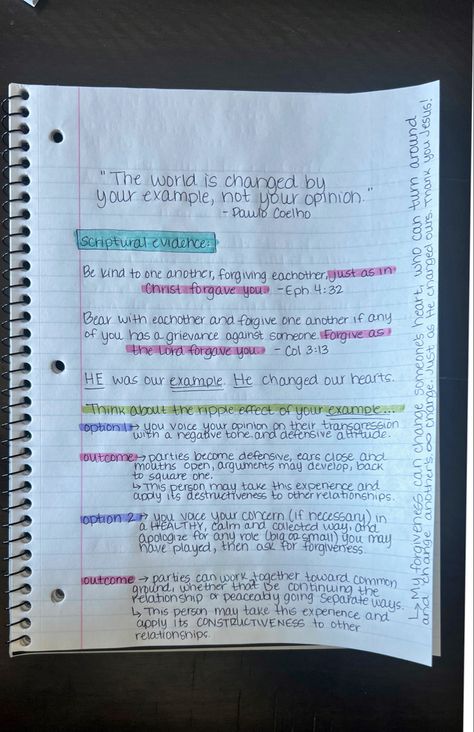 "The world is changed by
your example, not your opinion."
- Paulo Coelho
scriptural evidence:
Be kind to one another, forgiving eachother, just as in
Christ forgave you. - Eph 4:32
Bear with eachother and forgive one another if any
of you has a grievance against someone. Forgive as
the Lord forgave you. - Col 3:13
HE was our example. He changed our hearts.
Think about the ripple effect of your example...
option 1 → you voice your opinion on their transgression
with a negative tone and defensive attitude.
outcome → parties become defensive, ears close and
mouths open, arguments may develop, back
to square one.
↳ This person may take this experience and
apply its destructiveness to other relationships.
option 2 → you voice your concern (if necessary) in
a HEALTHY, calm and collected way, and
apologize for any role (big or small) you may
have played, then ask for forgiveness.
outcome → parties can work together toward common
ground, whether that be continuing the
relationship or peaceably going separate ways.
↳ This person may take this experience and
apply its CONSTRUCTIVENESS to other
relationships.
↳ My forgiveness can change someone's heart, who can turn around
and change another's. ∞ change. Just as He changed ours. Thank you Jesus!